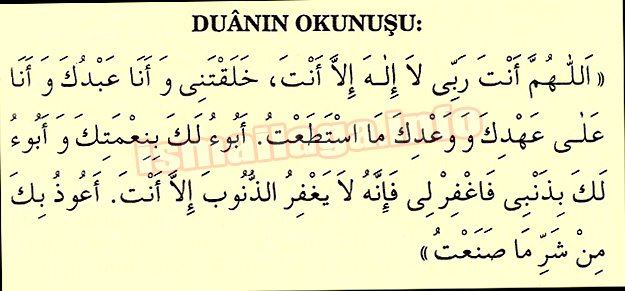 DUÂNIN OKUNUŞU:
« اَللّٰهُمَّ أَنْتَ رَبِّى لاَ إِلٰهَ إِلاَّ أَنْتَ، خَلَقْتَنِى وَ أَنَا عَبْدُكَ وَ أَنَا
عَلٰى عَهْدِكَ وَ وَعْدِكَ مَا اسْتَطَعْتُ. أَبُوءُ لَكَ بِنِعْمَتِكَ وَ أَبُوءُ
ismailaga.info
لَكَ بِذَنْبِى فَاغْفِرْ لِى فَإِنَّهُ لاَ يَغْفِرُ الذُّنُوبَ إِلاَّ أَنْتَ. أَعُوذُ بِكَ
مِنْ شَرِّ مَا صَنَعْتُ »